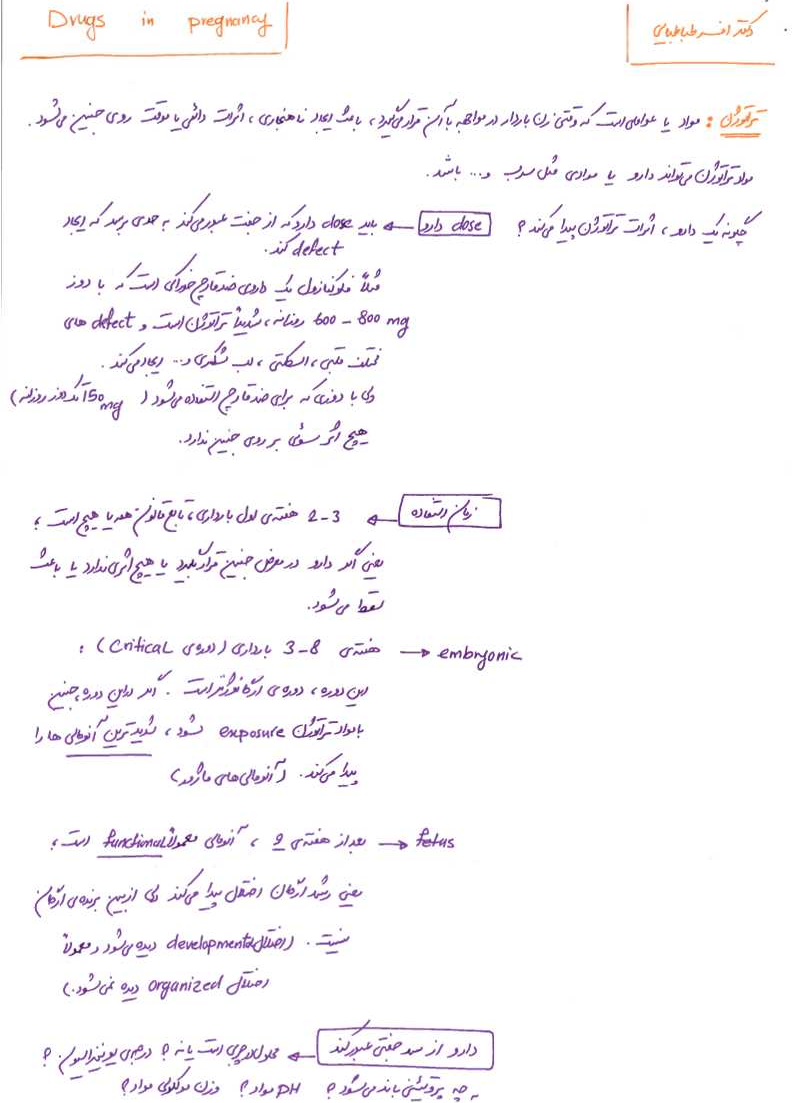 Drugs in pregnancy
دکتر افسر طباطبایی
تراتوژن : مواد یا عواملی است که وقتی زن باردار در مواجهه با آن قرار می‌گیرد، باعث ایجاد ناهنجاری، اثرات دائمی یا موقت روی جنین می‌شود.
مواد تراتوژن می‌تواند دارو یا موادی مثل سرب و... باشد.
چگونه یک دارو، اثرات تراتوژن پیدا می‌کند؟ dose دارو ← باید dose دارو که از جفت عبور می‌کند به حدی برسد که ایجاد
defect کند.
مثلاً فلوکونازول یک داروی ضد قارچ خوراکی است که با دوز
600 – 800 mg روزانه، شدیداً تراتوژن است و defect های
مختلف قلبی، اسکلتی، لب شکری و... ایجاد می‌کند.
ولی با دوزی که برای ضد قارچ استفاده می‌شود (150 mg تک دوز روزانه)
هیچ اثر سوئی بر روی جنین ندارد.
زمان استفاده ← 2-3 هفته‌ی اول بارداری، تابع قانون همه یا هیچ است؛
یعنی اگر دارو در معرض جنین قرار بگیرد یا هیچ اثری ندارد یا باعث
سقط می‌شود.
هفته‌ی 3-8 بارداری (دوره‌ی Critical) : → embryonic
این دوره، دوره‌ی ارگانوژنز است. اگر در این دوره، جنین
با مواد تراتوژن exposure شود، شدیدترین آنومالی ها را
پیدا می‌کند. (آنومالی‌های ماژور)
بعد از هفته‌ی 9، آنومالی معمولاً functional است؛ → fetus
یعنی رشد ارگان اختلال پیدا می‌کند ولی از بین برنده‌ی ارگان
نیست. (اختلال developmental دیده می‌شود و معمولاً
اختلال organized دیده نمی‌شود.)
دارو از سد جفتی عبور کند ← محلول در چربی است یا نه؟ درجه‌ی یونیزاسیون؟
به چه پروتئینی باند می‌شود؟ PH مواد؟ وزن مولکولی مواد؟